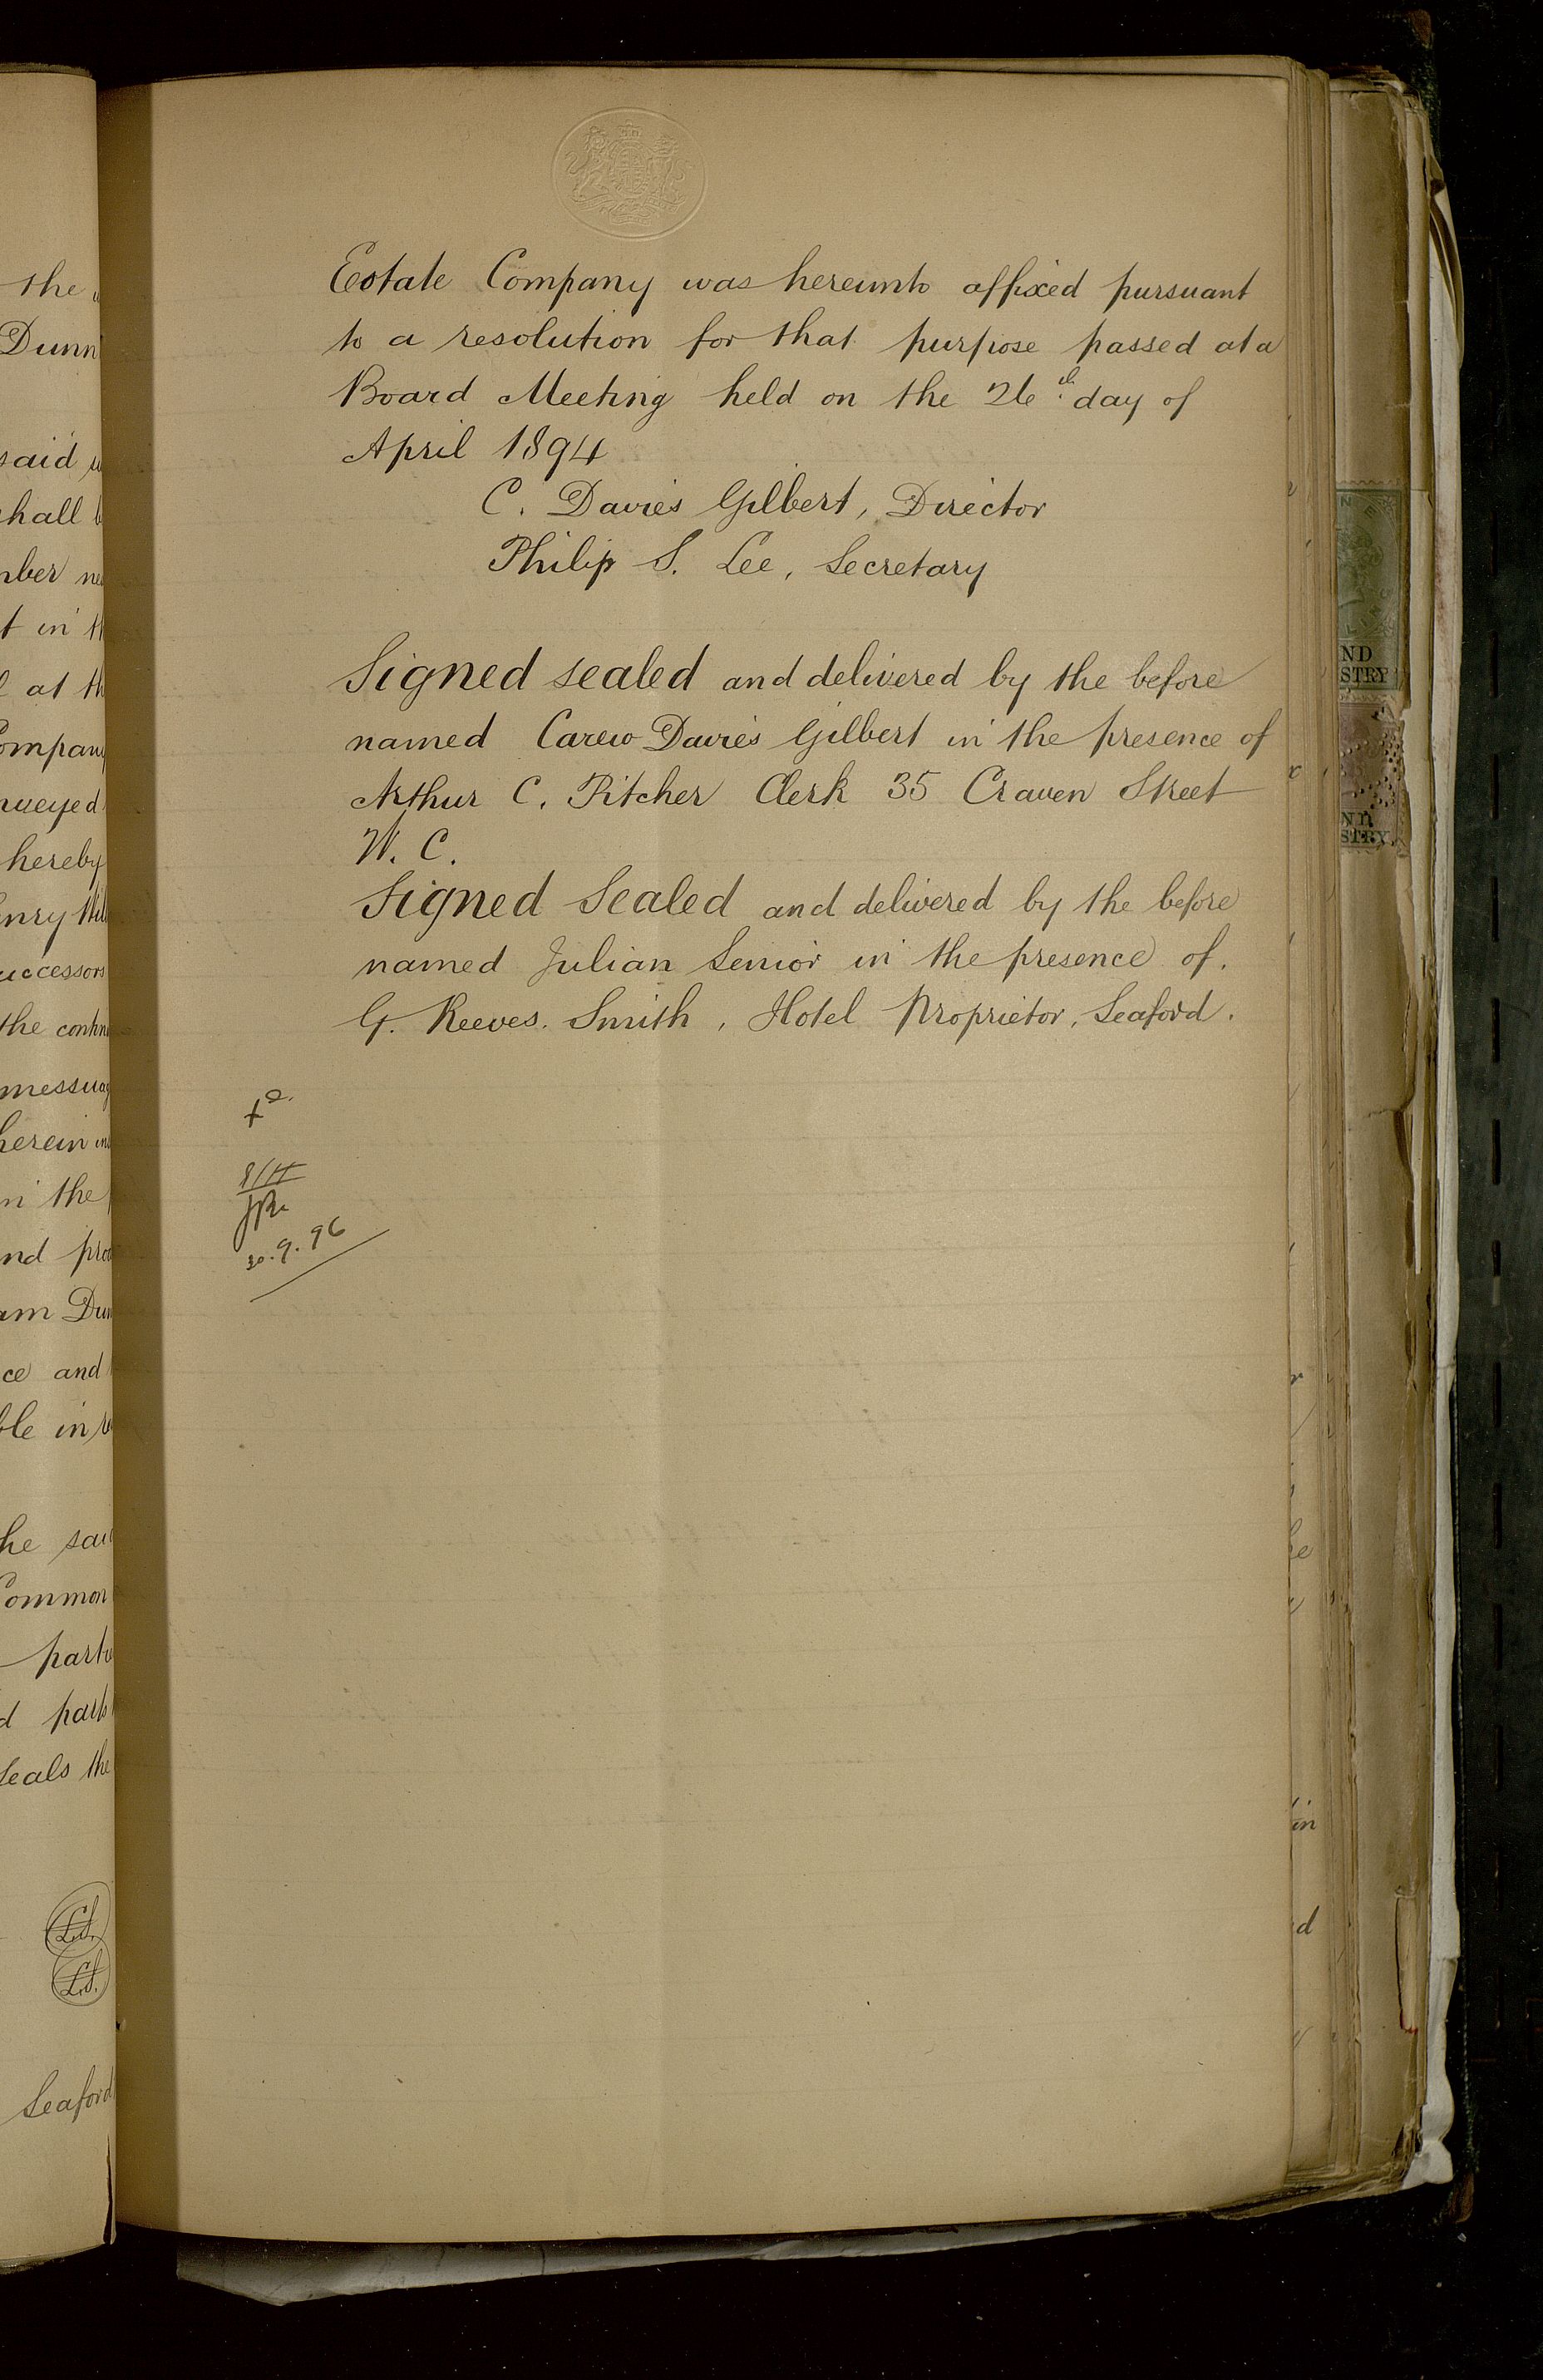 Estate Company was hereunto affixed pursuant
to a resolution for that purpose passed at a
Board Meeting held on the 26th day of
April 1894
C. Davies Gilbert, Director
Philip S. Lee, Secretary
Signed sealed and delivered by the before
named Carew Davies Gilbert in the presence of
Arthur C. Pitcher Clerk 35 Craven Street
W. C.
Signed Sealed and delivered by the before
named Julian Senior in the presence of.
G. Reeves. Smith, Hotel Proprietor, Seaford.
30.9.96
the
Dunn
said
hall
in
at
hereby
the
herein
the
and
he
Common
L.S.
L.S.
Seaford
ND
STRY
ND
STRY
in
d